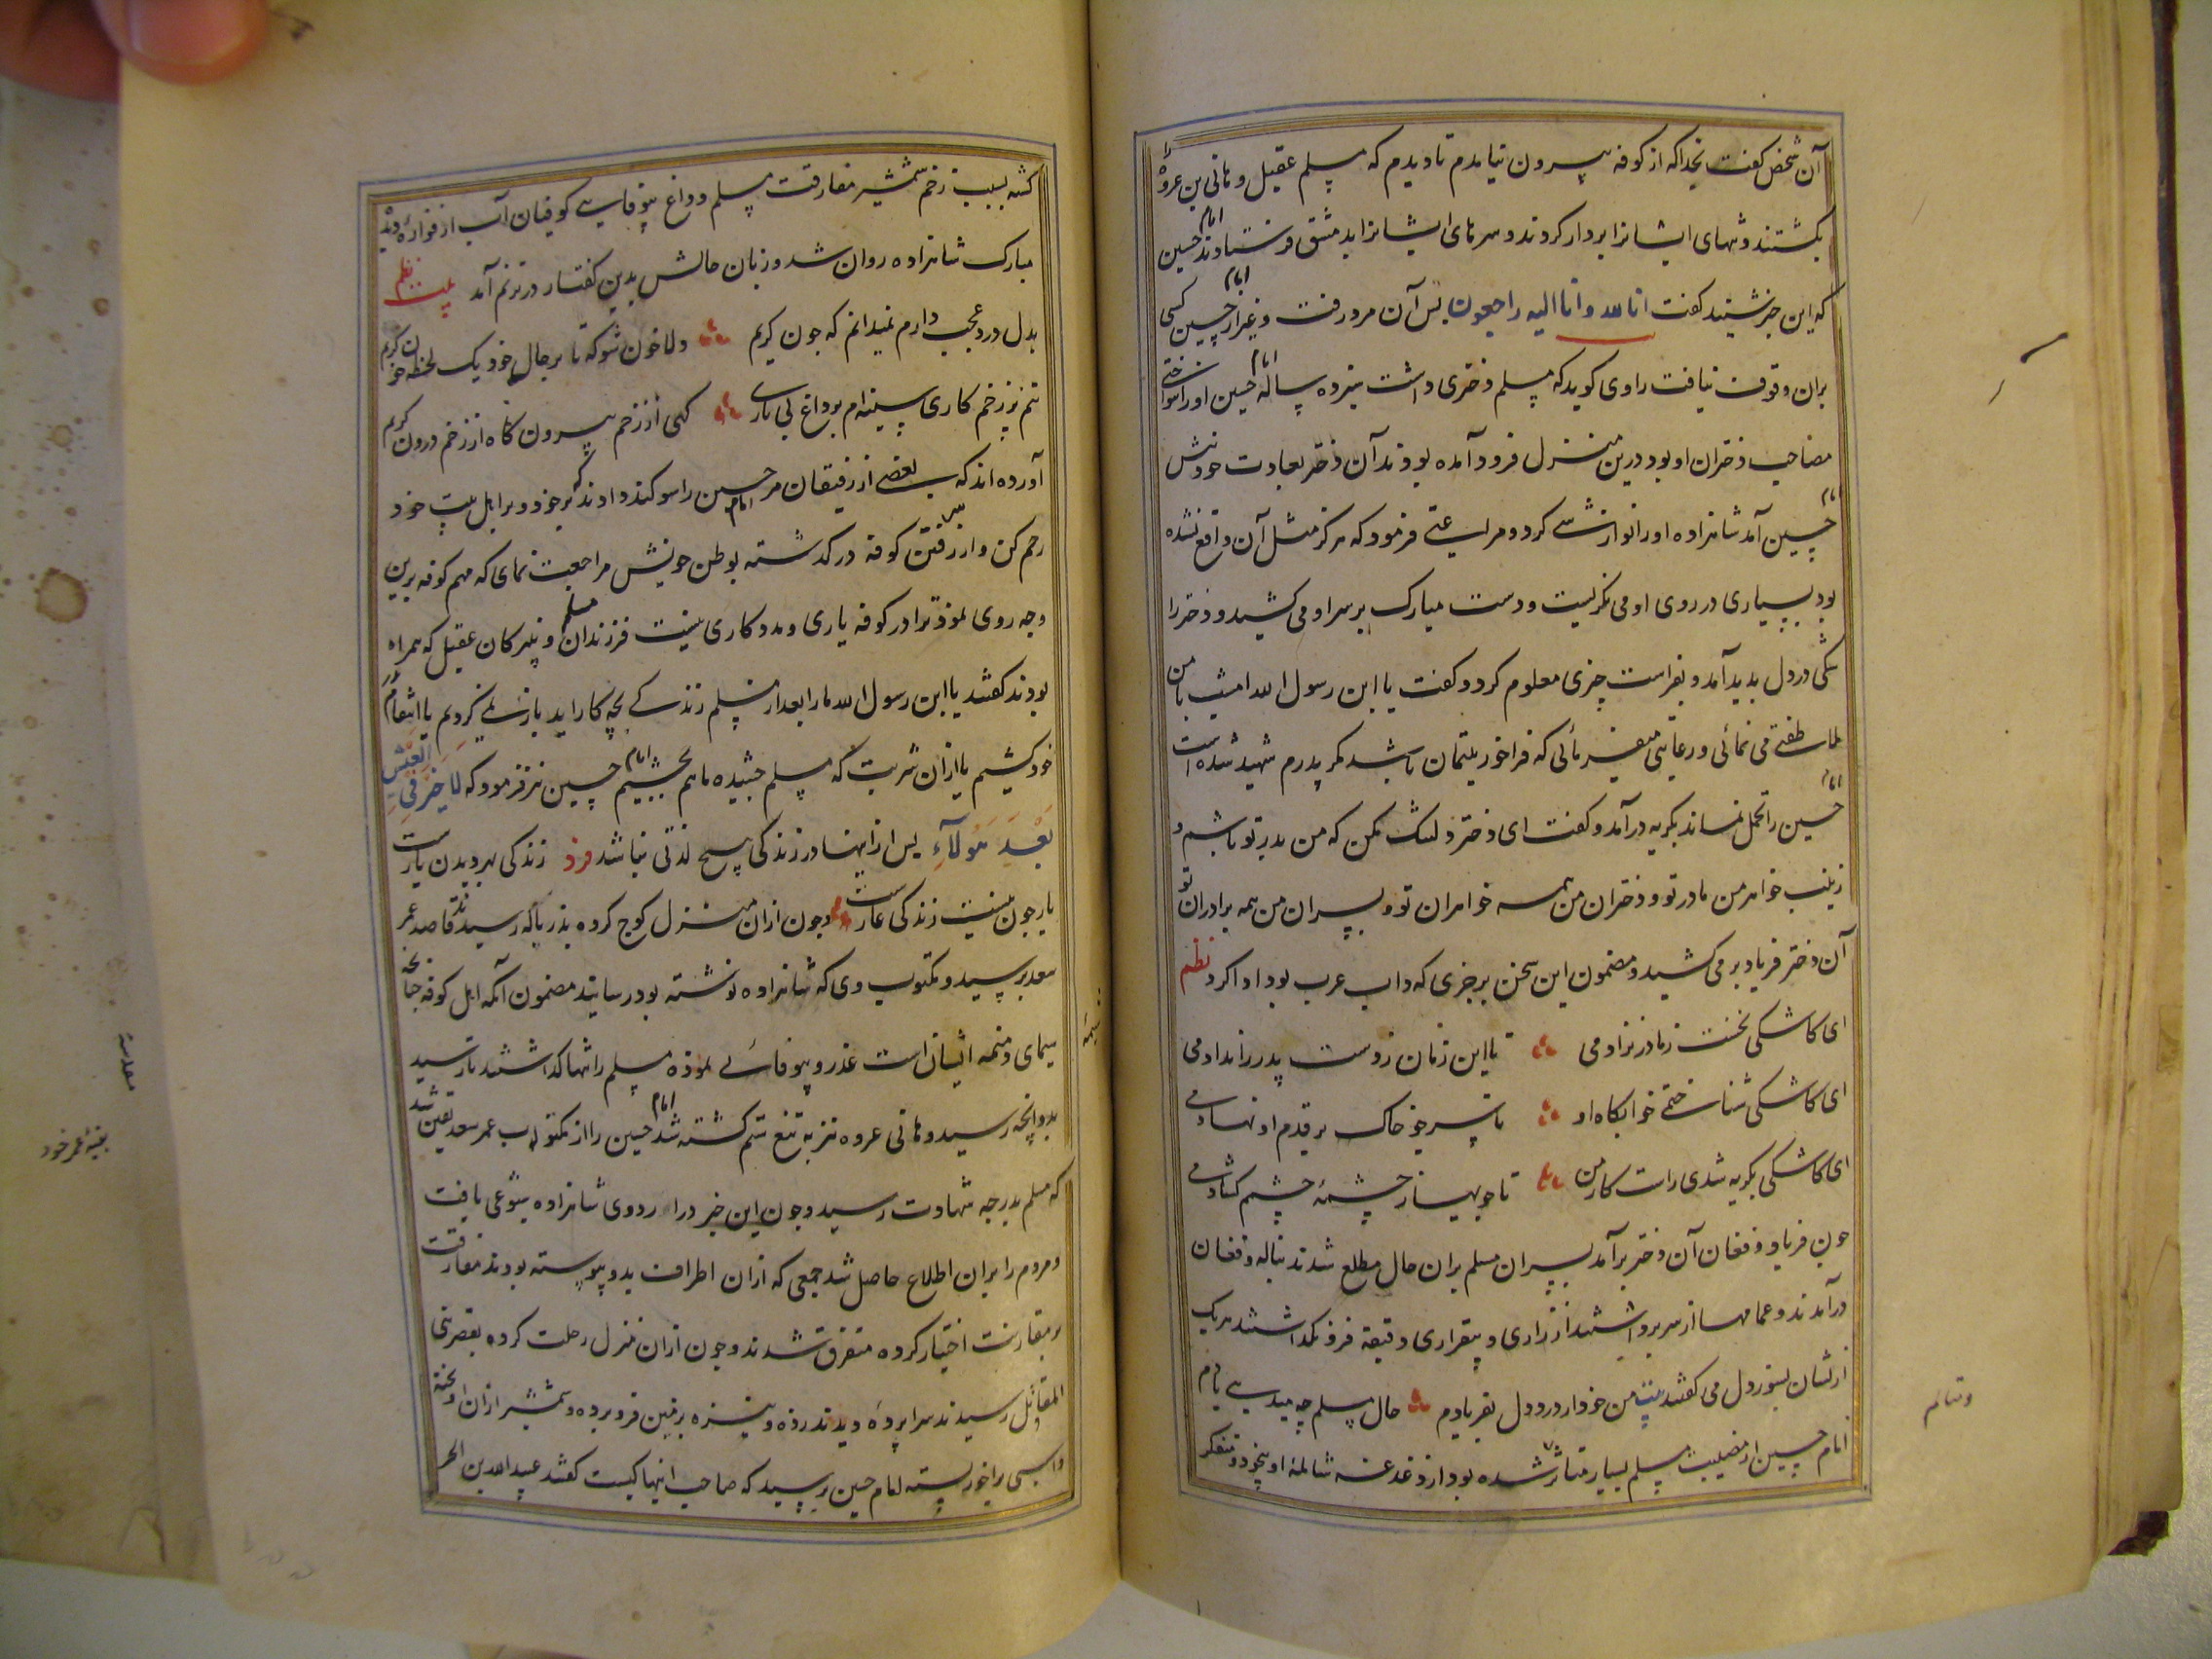 آن شخص کفت بخدا که از کوفه بیرون نیامدم تا دیدم که مسلم عقیل و هانی بن عروه را
بکشتند و تنهای ایشانرا بردار کردند و سرهای ایشانرا بدمشق فرستادند امام حسین
که این خبر شنید کفت انا لله وانا الیه راجعون پس آن مرد رفت و غیر از امام حسین کسی
بران وقوف نیافت راوی کوید که مسلم دختری داشت سیزده ساله امام حسین او را
مصاحب دختران او بود درین منزل فرود آمده بودند آن دختر بعادت خود پیش
امام حسین آمد شاهزاده او را نوازشی کرد و مراعتی فرمود که هرکز مثل آن واقع نشده
بود بسیاری در روی او می نکریست و دست مبارک بر سر او می کشید و دختر را
شکی در دل بدید آمد و بفراست چیزی معلوم کرد و کفت یا ابن رسول الله امشب با من
ملاطفتی می نمائی و رعایتی میفرمائی که فراخور یتیمان باشد مکر پدرم شهید شده است
امام حسین را تحمل نماند بکریه درآمد و کفت ای دختر دلتنک مکن که من بدر تو باشم و
زینب خواهر من مادر تو و دختران من همه خواهران تو و پسران من همه برادران تو
آن دختر فریاد بر می کشید و مضمون این سخن برجزی که داب عرب بود ادا کرد نظم
ای کاشکی نخست ز مادر نزادمی تا این زمان ز دست پدر را ندادمی
ای کاشکی شناختمی خوابکاه او تا سر چو خاک بر قدم او نهادمی
ای کاشکی بکریه شدی راست کار من تا جویها ز چشمهٔ چشم کشادمی
جون فریاد و فغان آن دختر برآمد پسران مسلم بران حال مطلع شدند بناله و فغان
درآمدند و عمامها از سر برداشتند از زاری و بیقراری دقیقه فرو نکذاشتند هریک
از ایشان بسوز دل می کفتند بیت من خود از درد دل بفریادم حال مسلم چه میدهی یادم
امام حسین از مصیبت مسلم بسیار متاثر شده بود از دغدغه شاملهٔ او بیخود و متفکر
وتالم
کشته بسبب زخم شمشیر مفارقت مسلم و داغ بیوفایی کوفیان آب از فوارهٔ دیدهٔ
مبارک شاهزاده روان شد و زبان حالش بدین کفتار در ترنم آمد نظم
بدل درد عجب دارم نمیدانم که جون کریم دلا خون شو که تا بر حال خود یک لحظه خون کریم
تنم پر زخم کاری سینه ام پر داغ بی یاری کهی از زخم بیرون کاه از زخم درون کریم
آورده اند که بعضی از رفیقان مر امام حسین را سوکند دادند که بر خود و بر اهل بیت خود
رحم کن و از سر رفتن کوفه درکذشته بوطن خویش مراجعت نمای که مهم کوفه برین
وجه روی نمود ترا در کوفه یاری و مددکاری نیست فرزندان مسلم و نبیرکان عقیل که همراه
بودند کفتند یا ابن رسول الله ما را بعد از مسلم زندکی بچه کار آید باز نمی کردیم یا انتقام
خود کشیم یا ازان شربت که مسلم چشیده ما هم بچشیم امام حسین نیز فرمود که لا خیر فی العیش
بعد هولاء پس از اینها در زندکی هیچ لذتی نباشد فرد زندکی بهر دیدن یارست
یار جون نیست زندکی عارست و جون ازان منزل کوج کرده بذریاله رسیدند قاصد عمر
سعد برسید و مکتوب وی که شاهزاده نوشته بود رسانید مضمون آنکه اهل کوفه جنانچه
سیمای و شیمه ایشانست غدر و بیوفائی نموده مسلم را تنها کذاشتند تا رسید
بدو انچه رسید و هانی عروه نیز به تیغ ستم کشته شد امام حسین را از مکتوب عمر سعد یقین شد
که مسلم بدرجه شهادت رسید و جون این خبر در اردوی شاهزاده شیوعی یافت
و مردم را بران اطلاع حاصل شد جمعی که ازان اطراف بدو پیوسته بودند مفارقت
بر مقارنت اختیار کرده متفرق شدند و جون ازان منزل رحلت کرده بقصر بنی
المقاتل رسیدند سراپرده دیدند زده و نیزه بر زمین فرو برده و شمشیر ازان آویخته
و اسبی بر آخور بسته امام حسین پرسید که صاحب اینها کیست کفتند عبید الله بن الحر